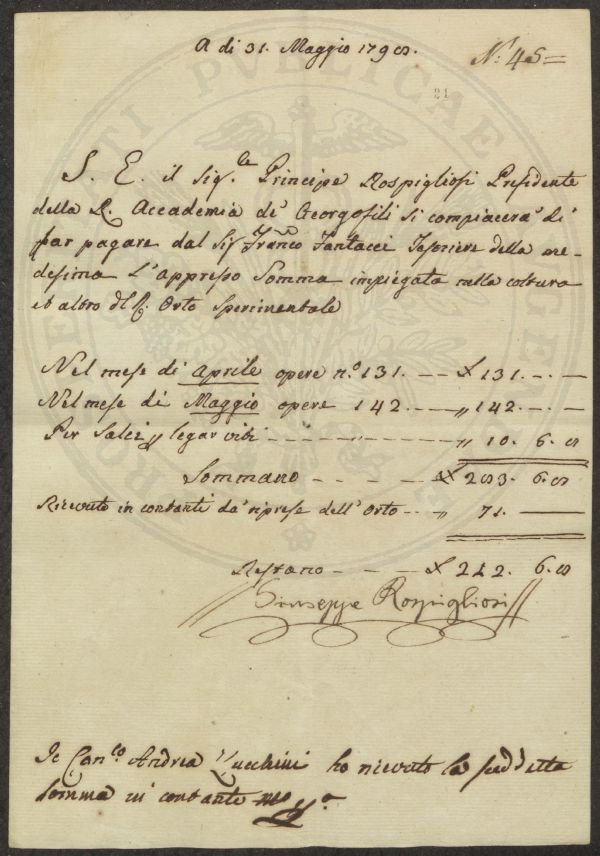 A di 31. Maggio 1798.
N: 45=
21
S. E. il Sig.le Principe Rospigliosi Presidente
della R. Accademia de' Georgofili si compiacerà di
far pagare dal Sig Franco Fantacci Tesoriere della me-
desima l'appresso Somma impiegata nella coltura
et altro dl R. Orto Sperimentale
Nel mese di Aprile opere n.o 131. — £ 131. — . —
Nel mese di Maggio opere 142. — „ 142. — . —
Per Salci „ legar viti - - - „ - - - „ 10. 6. 8
Sommano - - - - £ 283. 6. 8
Ricevuto in contanti da' riprese dell'Orto - - „ 71. —
Restano - - - - £ 212. 6. 8
Giuseppe Rospigliosi
Io Can.co Andrea Zucchini ho ricevuto la suddetta
somma in contante
PVBLICAE